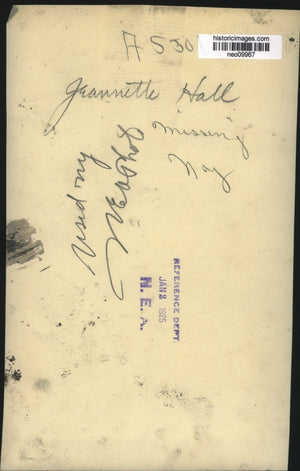 A 530
historicimages.com
neo09967
Jeannette Hall
missing
Used my
REFERENCE DEPT.
JAN 2 1925
N. E. A.